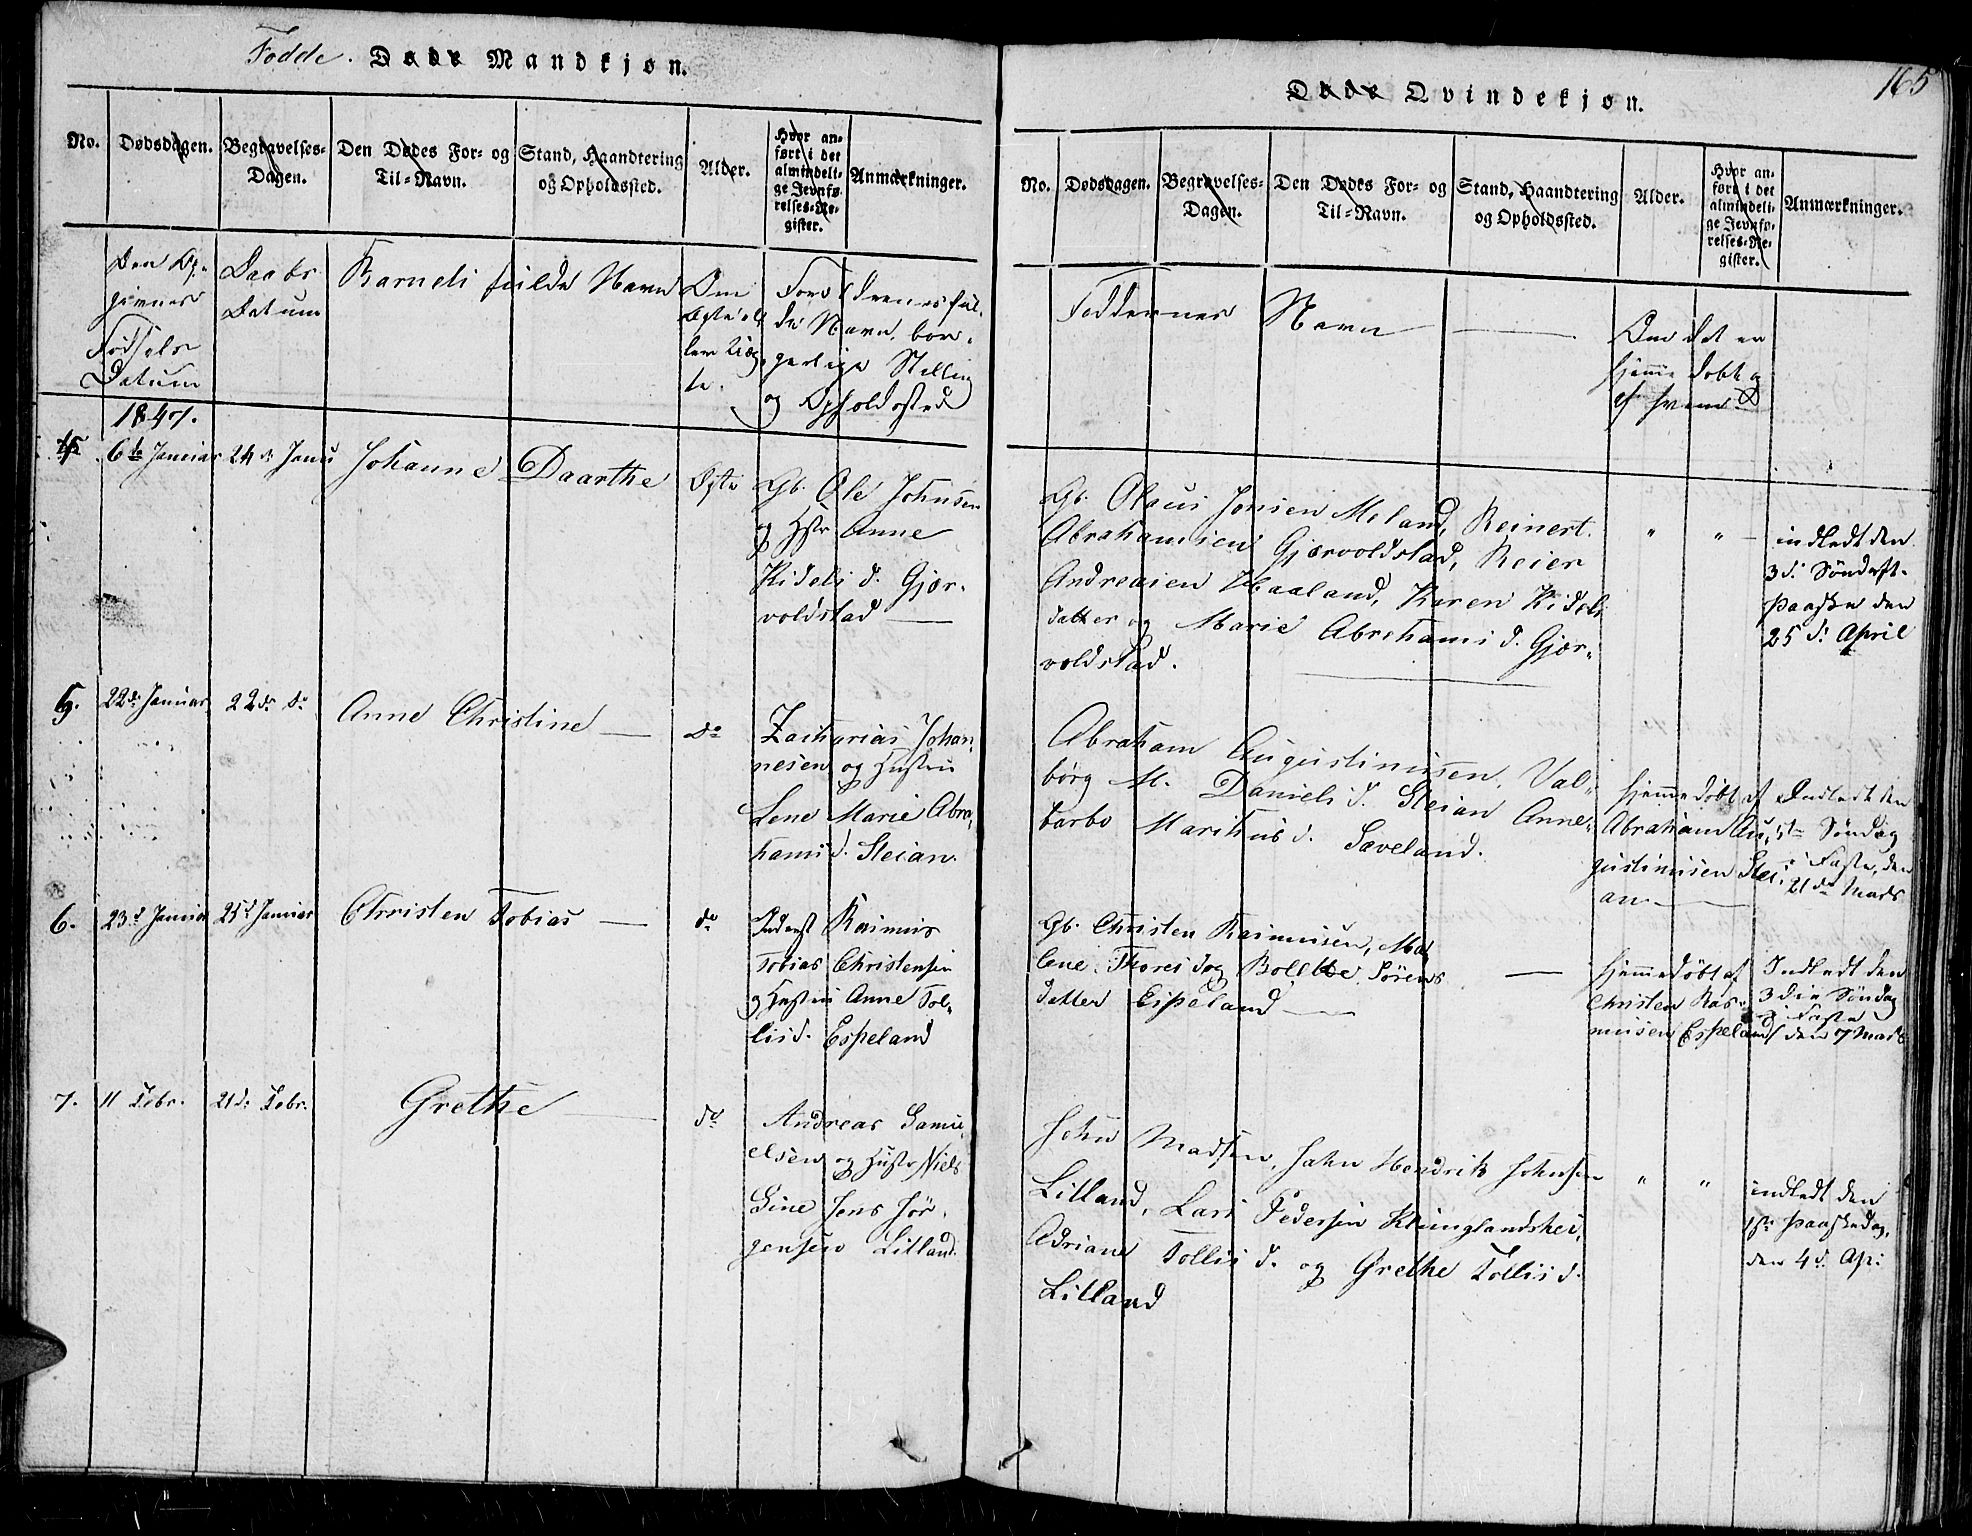 Fødde. Døde Mandkjøn.
No.
Dødsdagen.
Begravelses-
Dagen.
Den Dødes For- og
Til-Navn.
Stand, Haandtering
og Opholdssted.
Alder.
Hvor an-
ført i det
almindeli-
ge Jevnfø-
relses-Re-
gister.
Anmærkninger.
Fødsels
Datum
Daabs
Datum
Barnets fulde Navn
Om
Ægte el
ler Uæg
te.
Forældrenes ful-
de Navn, bor-
gerlige Stilling
og Opholdssted
1847.
6te Januar
24de Janu
Johanne Daarthe
Ægte
Gb. Ole Johnsen
og Hstr Anne
Kidels d. Gjær-
voldstad
5.
22de Januar
22de do
Anne Christine
do
Zacharias Johan-
nesen og Hustru
Lene Marie Abra-
hams d. Steian
6.
23d Januar
25d Januar
Christen Tobias
do
Inderst Rasmus
Tobias Christensen
og Hustru Anne Tol-
lisd. Espeland
7.
11 Febr.
21d Febr.
Grethe
do
Andreas Samu-
elsen og Hustr Niels
Sine Jens Jør-
gensen Lilland
165
Døde Qvindekjøn.
No.
Dødsdagen.
Begravelses-
Dagen.
Den Dødes For- og
Til-Navn.
Stand, Haandtering
og Opholdssted.
Alder.
Hvor an-
ført i det
almindeli-
ge Jevnfø-
relses-Re-
gister.
Anmærkninger.
Faddernes Navn
Om det er
hjemmedøbt og
af hvem
Gb. Olaus Jonsen Meland, Reinert
Abrahamsen Gjærvoldstad, Reier
Andreasen Haaland, Karen Kidels
datter og Marie Abrahams d. Gjær-
voldstad.
" "
indledt den
3d. Søndeft.
Paaske den
25d. April
Abraham Augustinusen, Val-
borg M. Daniels d. Steian Anne
barbo Marthus d. Sæveland.
hjemmedøbt af
Abraham Au-
gustinusen Stei-
an
Indledt den
5te Søndag
i Faste, den
21de Mads
Gb. Christen Rasmusen, Ma-
lene Thores d og Bolette Sørens
datter Espeland
hjemmedøbt af
Christen Ras-
musen Espeland
Indledt den
3die Søndag
i Faste
den 7 Mads
John Madsen, John Hendrik Johnsen
Lilland, Lars Pedersen Klunglandshei,
Adriane Tollis d. og Grethe Tollis d.
Lilland
" "
indledt den
1ste Paaskedag,
den 4d. Apr: